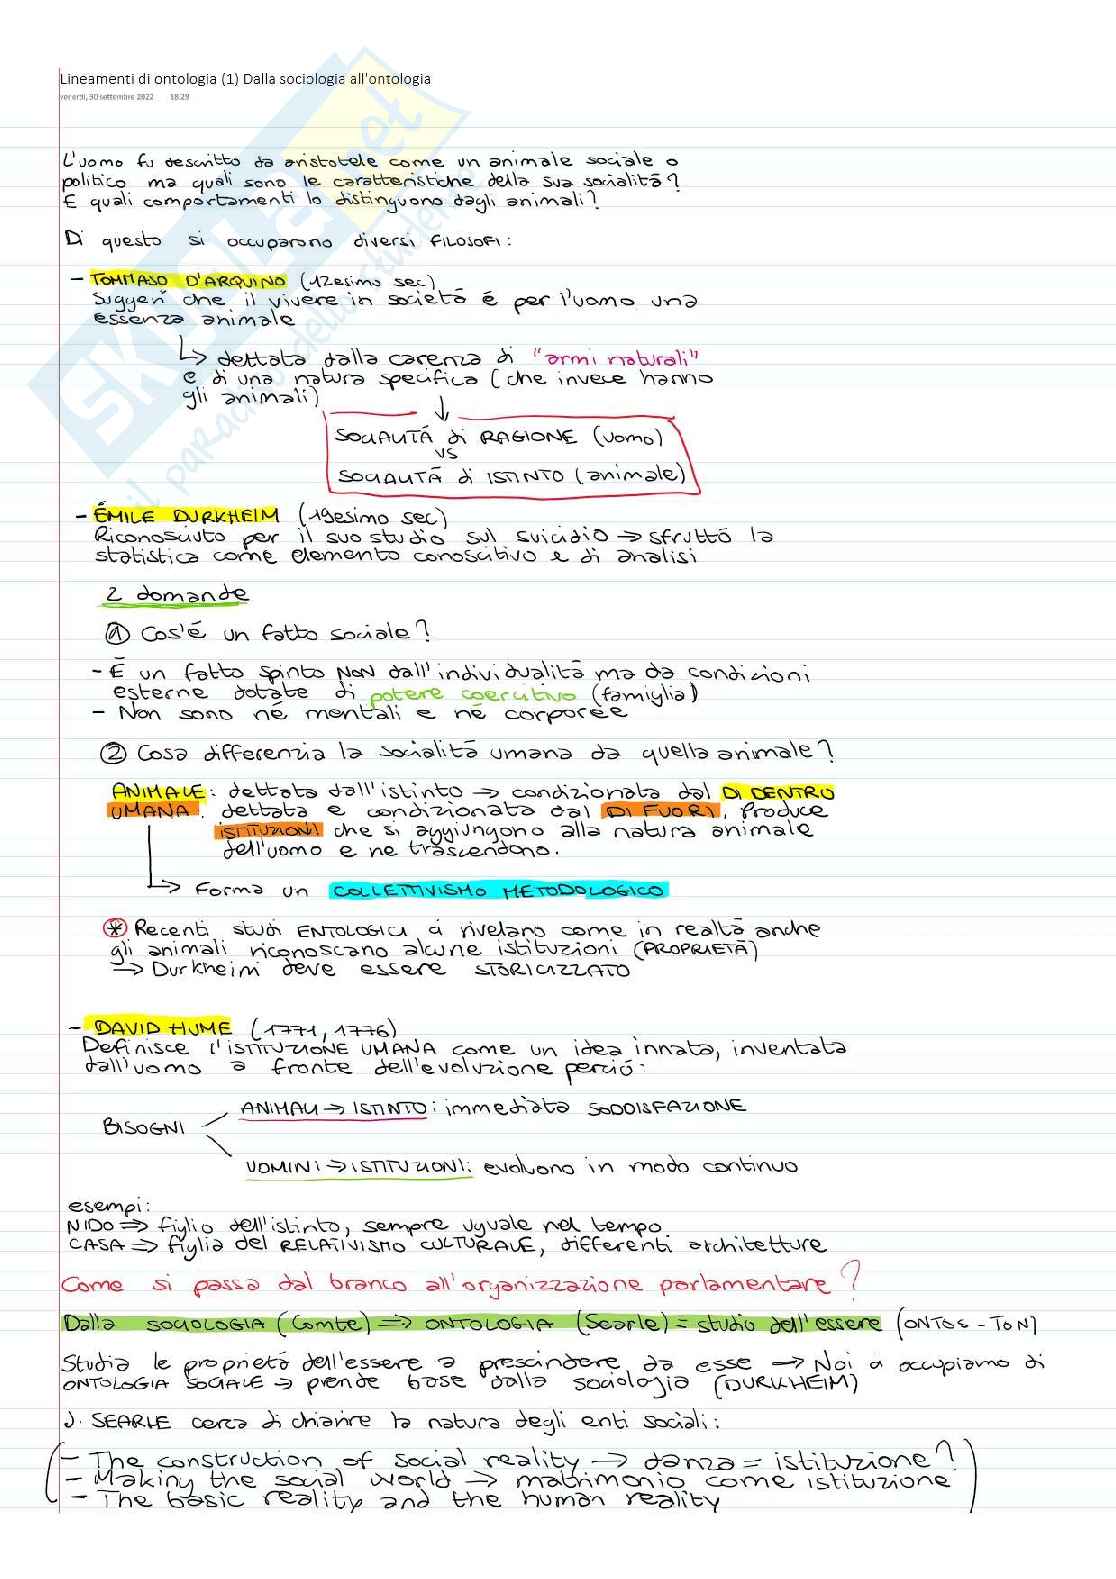 Lineamenti di ontologia (1) Dalla sociologia all'ontologia
venerdì, 30 settembre 2022 18:29
L'uomo fu descritto da aristotele come un animale sociale o
politico ma quali sono le caratteristiche della sua socialità?
E quali comportamenti lo distinguono dagli animali?
Di questo si occuparono diversi FILOSOFI:
- TOMMASO D'ARQUINO (12esimo sec)
Suggerì che il vivere in società é per l'uomo una
essenza animale
↳ dettata dalla carenza di "armi naturali"
e di una natura specifica (che invece hanno
gli animali)
↓
SOCIALITÁ di RAGIONE (uomo)
VS
SOCIALITÁ di ISTINTO (animale)
- ÉMILE DURKHEIM (19esimo sec)
Riconosciuto per il suo studio sul suicidio → sfruttò la
statistica come elemento conoscitivo e di analisi
2 domande
① Cos'é un fatto sociale?
- É un fatto spinto NON dall'individualità ma da condizioni
esterne dotate di potere coercitivo (famiglia)
- Non sono né mentali e né corporee
② Cosa differenzia la socialità umana da quella animale?
ANIMALE: dettata dall'istinto → condizionata dal DI DENTRO
UMANA: dettata e condizionata dal DI FUORI. Produce
ISTITUZIONI che si aggiungono alla natura animale
dell'uomo e ne trascendono.
↳ Forma un COLLETTIVISMO METODOLOGICO
* Recenti studi ENTOLOGICI ci rivelano come in realtà anche
gli animali riconoscano alcune istituzioni (PROPRIETÀ)
→ Durkheim deve essere STORICIZZATO
- DAVID HUME (1771, 1776)
Definisce l'ISTITUZIONE UMANA come un idea innata, inventata
dall'uomo a fronte dell'evoluzione perció:
ANIMALI → ISTINTO: immediata SODDISFAZIONE
BISOGNI
UOMINI → ISTITUZIONI: evolvono in modo continuo
esempi:
NIDO ⇒ figlio dell'istinto, sempre uguale nel tempo
CASA ⇒ figlia del RELATIVISMO CULTURALE, differenti architetture
Come si passa dal branco all'organizzazione parlamentare?
Dalla SOCIOLOGIA (Comte) ⇒ ONTOLOGIA (Searle) = studio dell'essere (ONTOS - TON)
Studia le proprietà dell'essere a prescindere da esse → Noi ci occupiamo di
ONTOLOGIA SOCIALE → prende base dalla sociologia (DURKHEIM)
J. SEARLE cerca di chiarire la natura degli enti sociali:
- The construction of social reality → danza = istituzione?
- Making the social world → matrimonio come istituzione
- The basic reality and the human reality
SKUOLA.net
il paradiso dello studente